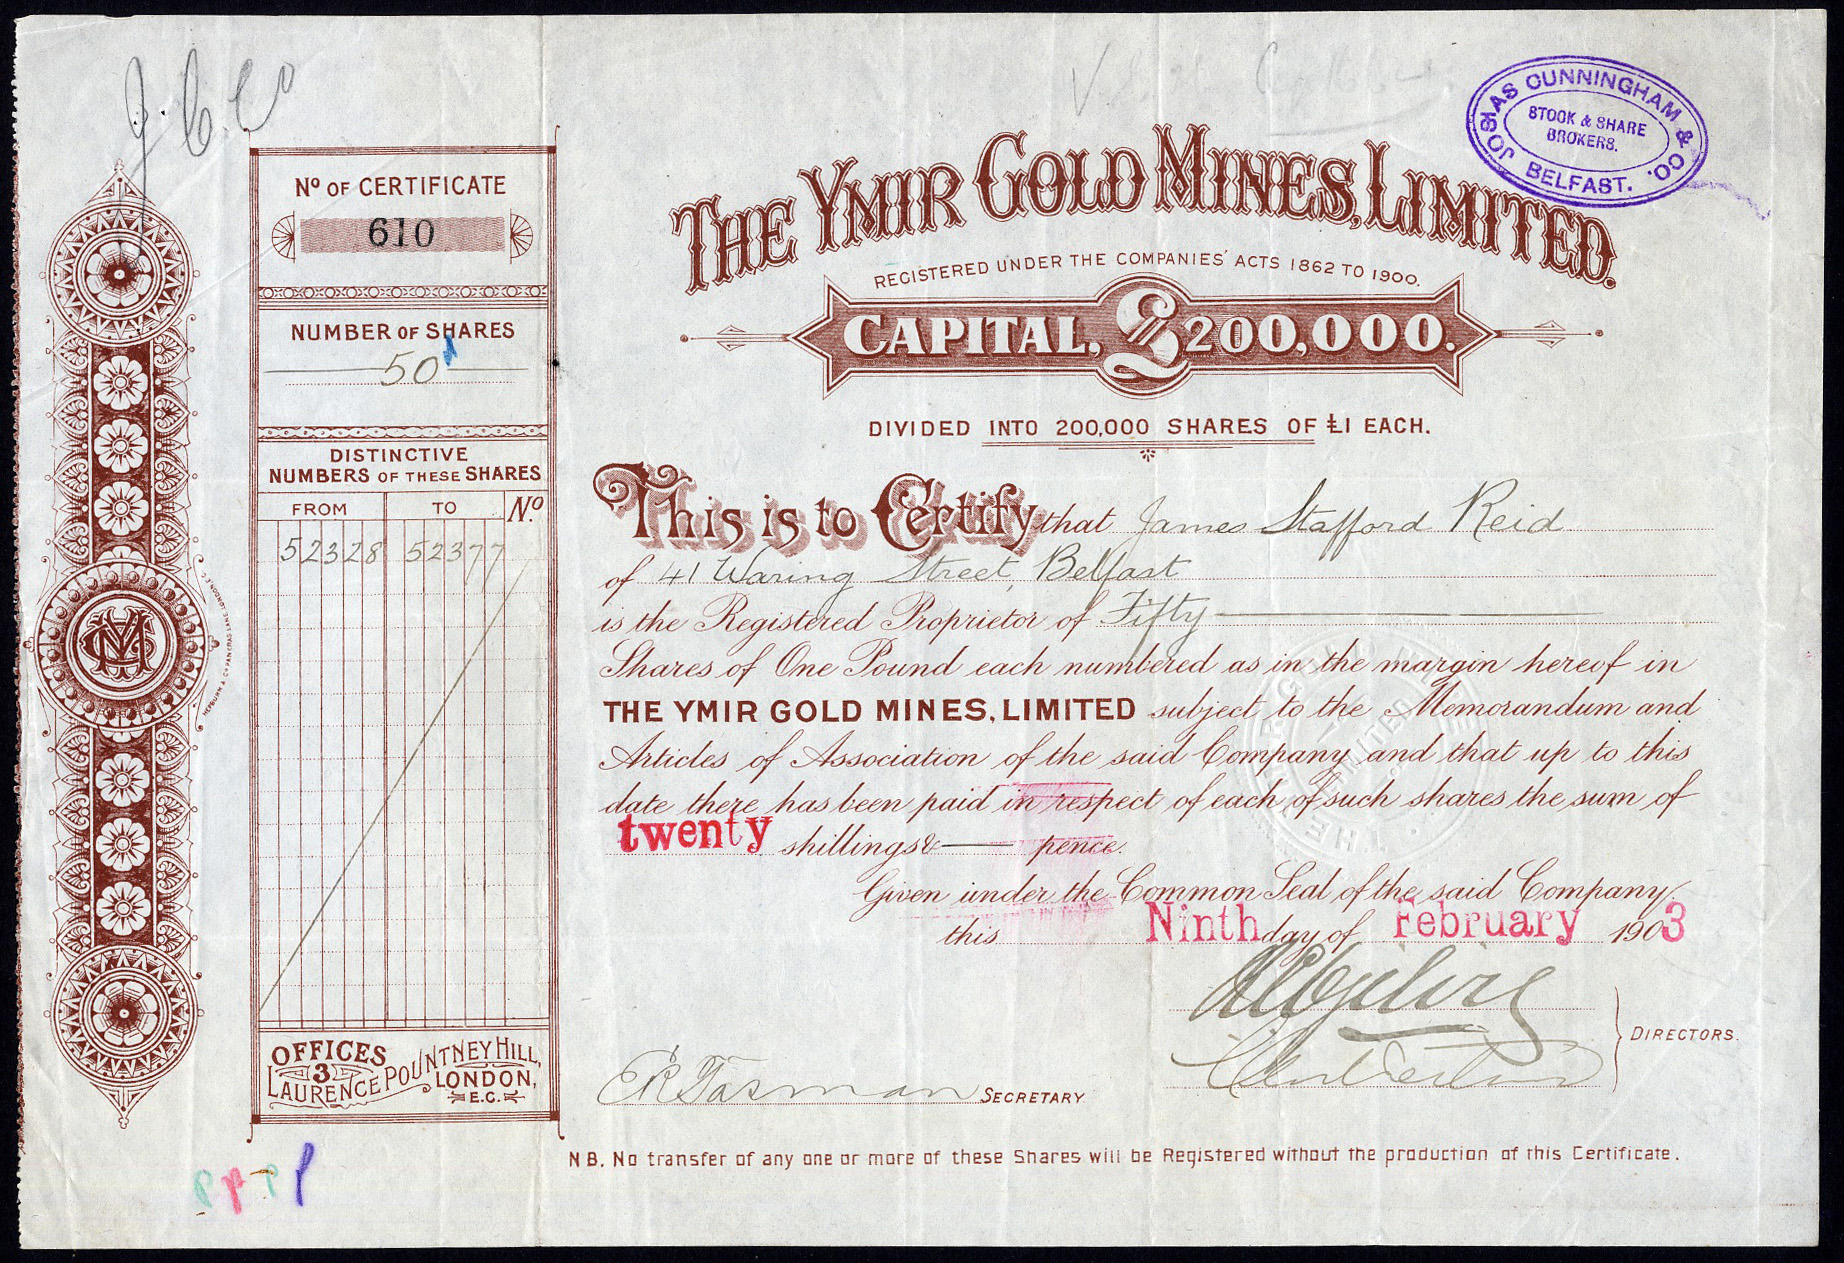 JOSIAS CUNNINGHAM & CO.
STOCK & SHARE
BROKERS.
BELFAST.
Nº OF CERTIFICATE
610
NUMBER OF SHARES
50
DISTINCTIVE
NUMBERS OF THESE SHARES
FROM TO Nº
52328 52377
OFFICES
3
LAURENCE POUNTNEY HILL,
LONDON,
E.C.
THE YMIR GOLD MINES, LIMITED.
REGISTERED UNDER THE COMPANIES' ACTS 1862 TO 1900.
CAPITAL, £200,000.
DIVIDED INTO 200,000 SHARES OF £1 EACH.
This is to Certify that James Stafford Reid
of 41 Waring Street, Belfast
is the Registered Proprietor of Fifty
Shares of One Pound each numbered as in the margin hereof in
THE YMIR GOLD MINES, LIMITED subject to the Memorandum and
Articles of Association of the said Company and that up to this
date there has been paid in respect of each of such shares the sum of
twenty shillings & — pence.
Given under the Common Seal of the said Company
this Ninth day of February 1903
DIRECTORS.
SECRETARY
N B. No transfer of any one or more of these Shares will be Registered without the production of this Certificate.